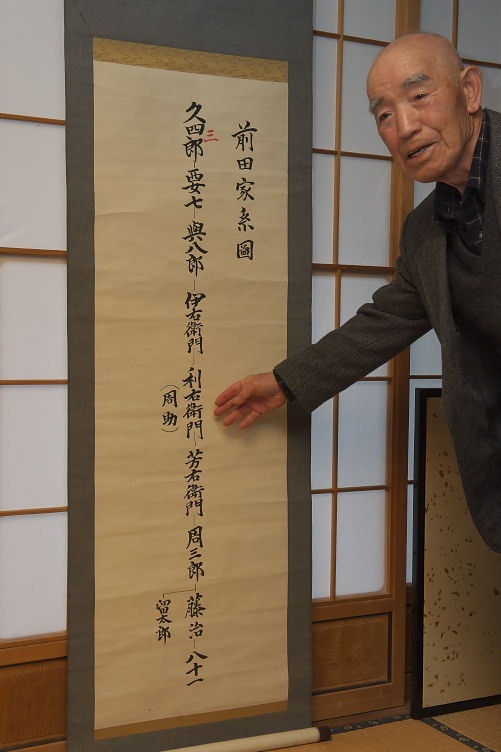 前田家系圖
久四郎 三 要七 與八郎 伊右衛門 利右衛門 芳右衛門 周三郎 藤治 八十一
(周助)
留太郎